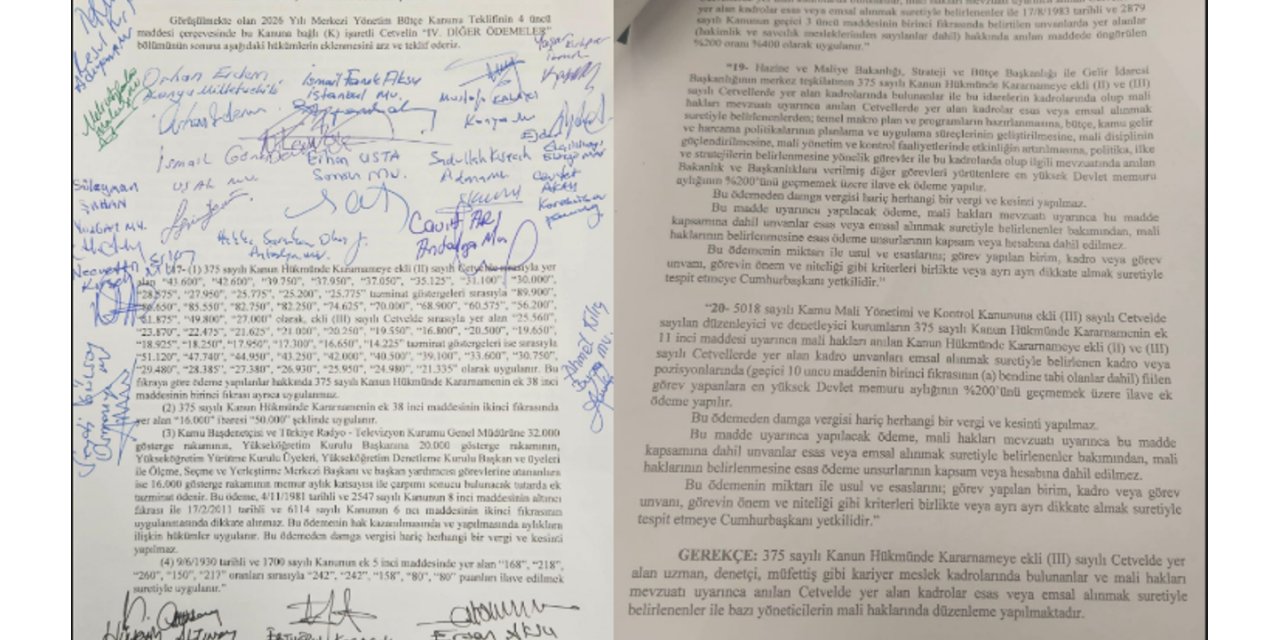 Görüşülmekte olan 2026 Yılı Merkezi Yönetim Bütçe Kanunu Teklifinin 4 üncü
maddesi çerçevesinde bu Kanuna bağlı (K) işaretli Cetvelin "IV. DİĞER ÖDEMELER"
bölümünün sonuna aşağıdaki hükümlerin eklenmesini arz ve teklif ederiz.
Orhan Erdem
Konya Milletvekili
İsmail Faruk Aksu
İstanbul Mv.
Mustafa
Konya Mv
İsmail
Uşak Mv.
Erhan USTA
Samsun Mv.
Adana Mv.
Süleyman
ŞAHAN
Yozgat Mv.
Cavit ARI
Antalya Mv.
(1) 375 sayılı Kanun Hükmünde Kararnameye ekli (II) sayılı Cetvelde sırasıyla yer
alan "43.600", "42.600", "39.750", "37.950", "37.050", "35.125", "31.100", "30.000",
"28.575", "27.950", "25.775", "25.200", "25.775" tazminat göstergeleri sırasıyla "89.900",
"85.550", "82.750", "82.250", "74.625", "70.000", "68.900", "60.575", "56.200",
"49.800", "27.000" olarak, ekli (III) sayılı Cetvelde sırasıyla yer alan "25.560",
"23.870", "22.475", "21.625", "21.000", "20.250", "19.550", "16.800", "20.500", "19.650",
"18.925", "18.250", "17.950", "17.300", "16.650", "14.225" tazminat göstergeleri ise sırasıyla
"51.120", "47.740", "44.950", "43.250", "42.000", "40.500", "39.100", "33.600", "30.750",
"29.480", "28.385", "27.380", "26.930", "25.950", "24.980", "21.335" olarak uygulanır. Bu
fıkraya göre ödeme yapılanlar hakkında 375 sayılı Kanun Hükmünde Kararnamenin ek 38 inci
maddesinin birinci fıkrası ayrıca uygulanmaz.
(2) 375 sayılı Kanun Hükmünde Kararnamenin ek 38 inci maddesinin ikinci fıkrasında
yer alan "16.000" ibaresi "50.000" şeklinde uygulanır.
(3) Kamu Başdenetçisi ve Türkiye Radyo - Televizyon Kurumu Genel Müdürüne 32.000
gösterge rakamının, Yükseköğretim Kurulu Başkanına 20.000 gösterge rakamının,
Yükseköğretim Yürütme Kurulu Üyeleri, Yükseköğretim Denetleme Kurulu Başkan ve üyeleri
ile Ölçme, Seçme ve Yerleştirme Merkezi Başkanı ve başkan yardımcısı görevlerine atananlara
ise 16.000 gösterge rakamının memur aylık katsayısı ile çarpımı sonucu bulunacak tutarda ek
tazminat ödenir. Bu ödeme, 4/11/1981 tarihli ve 2547 sayılı Kanunun 8 inci maddesinin altıncı
fıkrası ile 17/2/2011 tarihli ve 6114 sayılı Kanunun 6 ncı maddesinin ikinci fıkrasının
uygulanmasında dikkate alınmaz. Bu ödemenin hak kazanılmasında ve yapılmasında aylıklara
ilişkin hükümler uygulanır. Bu ödemeden damga vergisi hariç herhangi bir vergi ve kesinti
yapılmaz.
(4) 9/6/1930 tarihli ve 1700 sayılı Kanunun ek 5 inci maddesinde yer alan "168", "218",
"260", "150", "217" oranları sırasıyla "242", "242", "158", "80", "80" puanları ilave edilmek
suretiyle uygulanır."
kadrolar esas veya emsal alınmak suretiyle belirlenenler ile 17/8/1983 tarihli ve 2879
sayılı Kanunun geçici 3 üncü maddesinin birinci fıkrasında belirtilen unvanlarda yer alanlar
(hakimlik ve savcılık mesleklerinden sayılanlar dahil) hakkında anılan maddede öngörülen
%200 oranı %400 olarak uygulanır."
"19- Hazine ve Maliye Bakanlığı, Strateji ve Bütçe Başkanlığı ile Gelir İdaresi
Başkanlığının merkez teşkilatının 375 sayılı Kanun Hükmünde Kararnameye ekli (II) ve (III)
sayılı Cetvellerde yer alan kadrolarında bulunanlar ile bu idarelerin kadrolarında olup mali
hakları mevzuatı uyarınca anılan Cetvellerde yer alan kadrolar esas veya emsal alınmak
suretiyle belirlenenlerden; temel makro plan ve programların hazırlanmasına, bütçe, kamu gelir
ve harcama politikalarının planlama ve uygulama süreçlerinin geliştirilmesine, mali disiplinin
güçlendirilmesine, mali yönetim ve kontrol faaliyetlerinde etkinliğin artırılmasına, politika, ilke
ve stratejilerin belirlenmesine yönelik görevler ile bu kadrolarda olup ilgili mevzuatında anılan
Bakanlık ve Başkanlıklara verilmiş diğer görevleri yürütenlere en yüksek Devlet memuru
aylığının %200'ünü geçmemek üzere ilave ek ödeme yapılır.
Bu ödemeden damga vergisi hariç herhangi bir vergi ve kesinti yapılmaz.
Bu madde uyarınca yapılacak ödeme, mali hakları mevzuatı uyarınca bu madde
kapsamına dahil unvanlar esas veya emsal alınmak suretiyle belirlenenler bakımından, mali
haklarının belirlenmesine esas ödeme unsurlarının kapsam veya hesabına dahil edilmez.
Bu ödemenin miktarı ile usul ve esaslarını; görev yapılan birim, kadro veya görev
unvanı, görevin önem ve niteliği gibi kriterleri birlikte veya ayrı ayrı dikkate almak suretiyle
tespit etmeye Cumhurbaşkanı yetkilidir."
"20- 5018 sayılı Kamu Mali Yönetimi ve Kontrol Kanununa ekli (III) sayılı Cetvelde
sayılan düzenleyici ve denetleyici kurumların 375 sayılı Kanun Hükmünde Kararnamenin ek
11 inci maddesi uyarınca mali hakları anılan Kanun Hükmünde Kararnameye ekli (II) ve (III)
sayılı Cetvellerde yer alan kadro unvanları emsal alınmak suretiyle belirlenen kadro veya
pozisyonlarında (geçici 10 uncu maddenin birinci fıkrasının (a) bendine tabi olanlar dahil) fiilen
görev yapanlara en yüksek Devlet memuru aylığının %200'ünü geçmemek üzere ilave ek
ödeme yapılır.
Bu ödemeden damga vergisi hariç herhangi bir vergi ve kesinti yapılmaz.
Bu madde uyarınca yapılacak ödeme, mali hakları mevzuatı uyarınca bu madde
kapsamına dahil unvanlar esas veya emsal alınmak suretiyle belirlenenler bakımından, mali
haklarının belirlenmesine esas ödeme unsurlarının kapsam veya hesabına dahil edilmez.
Bu ödemenin miktarı ile usul ve esaslarını; görev yapılan birim, kadro veya görev
unvanı, görevin önem ve niteliği gibi kriterleri birlikte veya ayrı ayrı dikkate almak suretiyle
tespit etmeye Cumhurbaşkanı yetkilidir."
GEREKÇE: 375 sayılı Kanun Hükmünde Kararnameye ekli (III) sayılı Cetvelde yer
alan uzman, denetçi, müfettiş gibi kariyer meslek kadrolarında bulunanlar ve mali hakları
mevzuatı uyarınca anılan Cetvelde yer alan kadrolar esas veya emsal alınmak suretiyle
belirlenenler ile bazı yöneticilerin mali haklarında düzenleme yapılmaktadır.